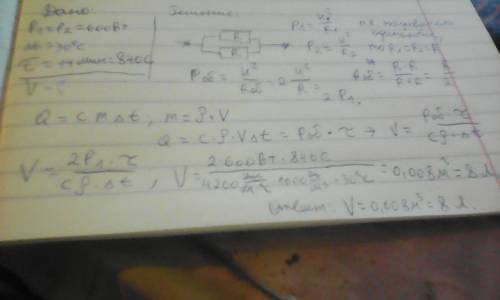 Дано:
P₁=P₂=600Вт
Δt=30°C
τ=14мин=840с
V-?
Решение:
R
R
P₁=U²/R₁
P₂=U²/R₂ то R₁=R₂=R
Pоб=U²/Rоб=2U²/R=2P₁
Rоб=R·R/R+R=R/2
Q=cmΔt, m=ρ·V
Q=c·ρ·VΔt=Pоб·τ → V=Pоб·τ/cρ·Δt
V=2P₁·τ/cρ·Δt, V=2·600Вт·840с/4200·1000·30°C=0,008м³=8л.
Ответ: V=0,008м³=8л.